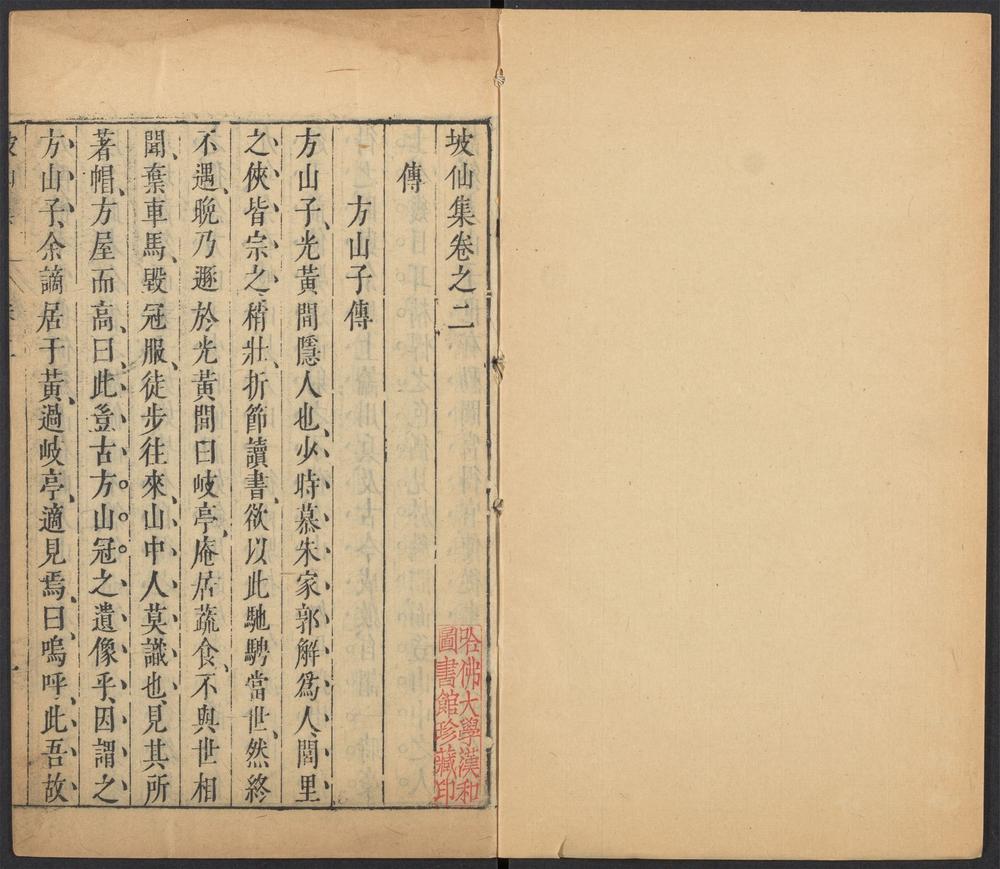 坡仙集卷之二
傳
方山子傳
方山子光黃間隱人也少時慕朱家郭解爲人閭里
之俠皆宗之稍壯折節讀書欲以此馳騁當世然終
不遇晚乃遯於光黃間曰岐亭庵居蔬食不與世相
聞棄車馬毀冠服徒步往來山中人莫識也見其所
著帽方屋而高曰此豈古方山冠之遺像乎因謂之
方山子余謫居于黃過岐亭適見焉曰嗚呼此吾故
哈佛大學漢和
圖書館珍藏印